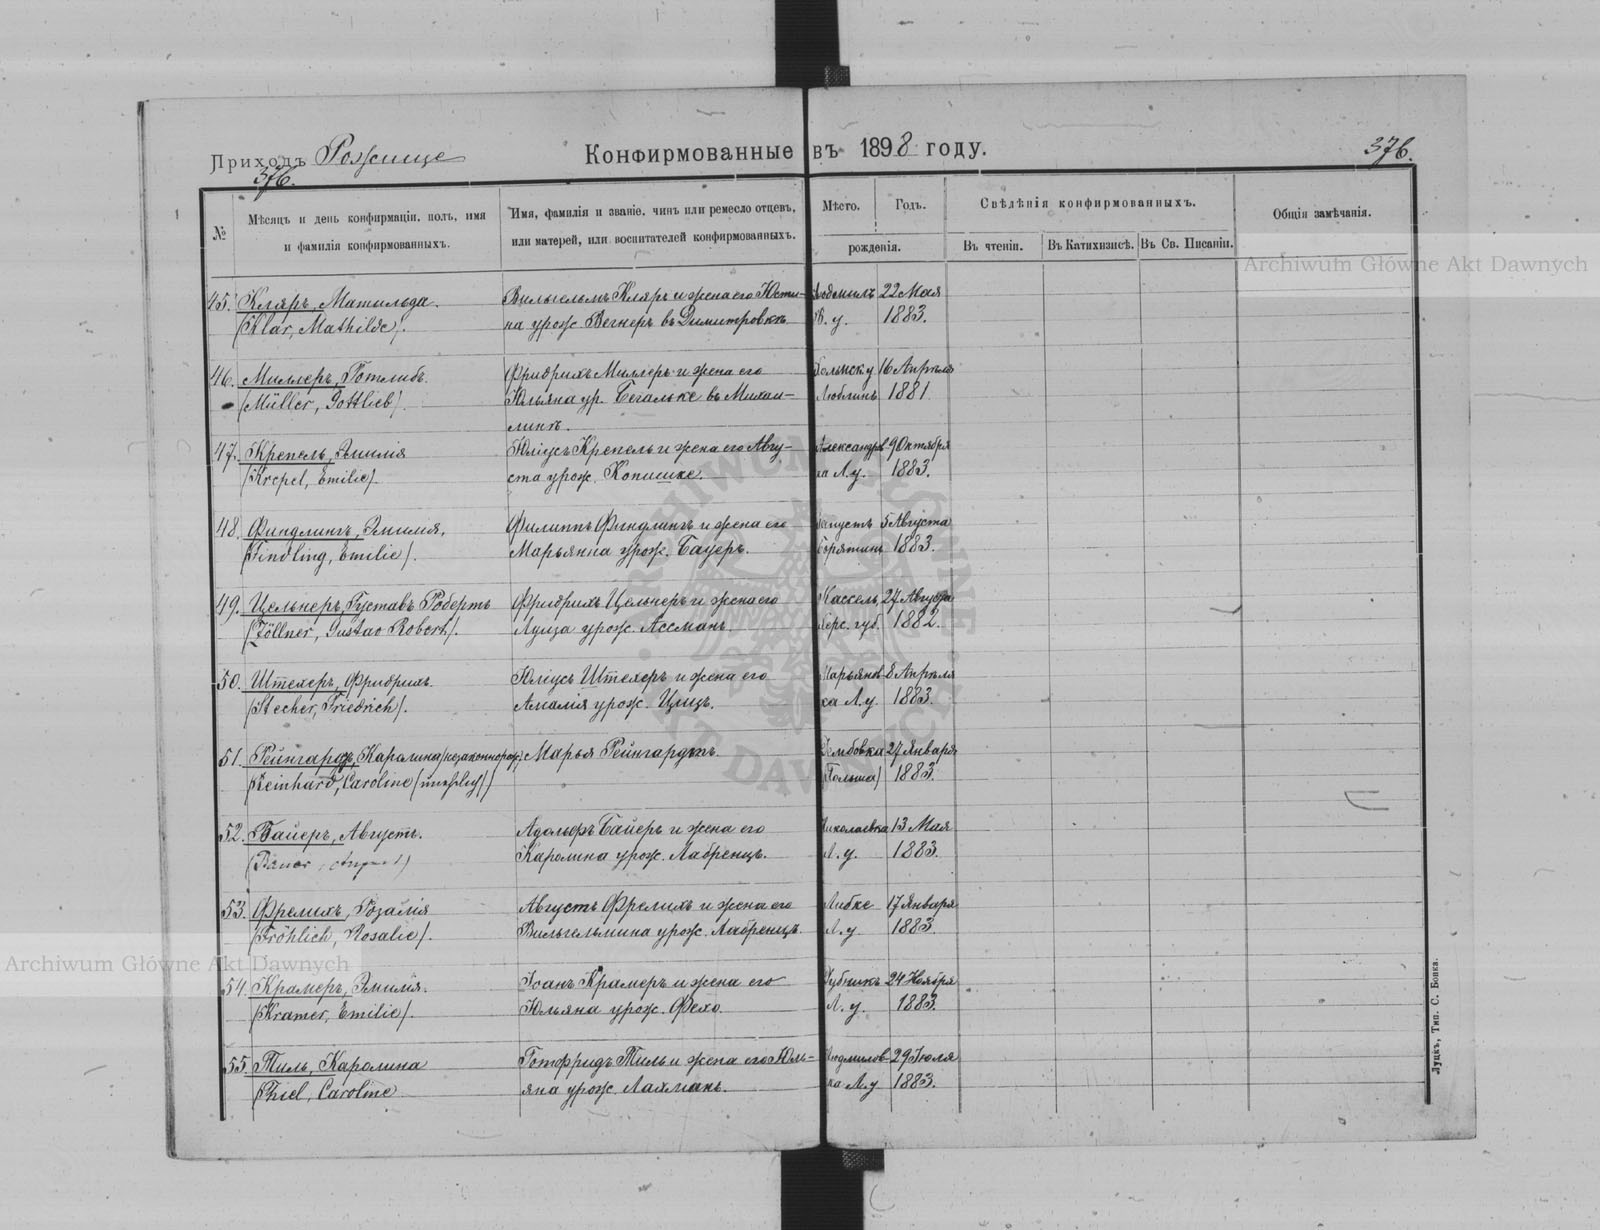 Приходъ Рожище
Конфирмованные въ 1898 году.
376.
376.
№
Мѣсяцъ и день конфирмаціи, полъ, имя
и фамилія конфирмованныхъ.
Имя, фамилія и званіе, чинъ или ремесло отцевъ,
или матерей, или воспитателей конфирмованныхъ.
Мѣсто. Годъ.
рожденія.
Свѣдѣнія конфирмованныхъ.
Въ чтеніи. Въ Катихизисѣ. Въ Св. Писаніи.
Общія замѣчанія.
Archiwum Główne Akt Dawnych
45. Кляръ, Матильда. Вильгельмъ Кляръ и жена его Юсти- 22 Мая
(Klar, Mathilde). на урож. Вегнеръ въ Димитровкѣ 1883.
46. Миллеръ, Готлибъ. Фридрихъ Миллеръ и жена его 16 Апрѣля
(Müller, Gottlieb). Юльяна ур. Бегальке въ Михай- Люблинъ 1881
линѣ.
47. Крепель, Эмилія Юліусъ Крепель и жена его Авгу- Александров 9 Октября
(Krepel, Emilie). ста урож. Копишке. ка Л. у. 1883.
48. Финдлингъ, Эмилія. Филиппъ Финдлингъ и жена его 5 Августа
(Findling, Emilie). Марьянна урож. Бауеръ. 1883.
49. Цельнеръ, Густавъ Робертъ Фридрихъ Цельнеръ и жена его Кассель, 27 Августа
(Zöllner, Gustav Robert). Луиза урож. Ассманъ. Херс. губ. 1882.
50. Штехеръ, Фридрихъ. Юліусъ Штехеръ и жена его Марьянов 8 Апрѣля
(Stecher, Friedrich). Амалія урож. Цицъ. ка Л. у. 1883.
51. Рейнгардъ, Каролина (незаконнорожд.) Марья Рейнгардтъ. Дембовка 27 Января
(Reinhard, Caroline (unehelich)) (Польша) 1883.
52. Байеръ, Августъ. Адольфъ Байеръ и жена его Николаевка 13 Мая
(Bauer, August) Каролина урож. Лабренцъ. Л. у. 1883.
53. Фрелихъ, Розалія Августъ Фрелихъ и жена его 17 Января
(Fröhlich, Rosalie). Вильгельмина урож. Лабренцъ. Л. у 1883.
Archiwum Główne Akt Dawnych
54. Крамеръ, Эмилія. Іоанъ Крамеръ и жена его Дубникъ 24 Ноября
(Kramer, Emilie). Юльяна урож. Фехо. Л. у. 1883.
55. Тиль, Каролина Готфридъ Тиль и жена его Юль- Людмилов 29 Іюля
(Thiel, Caroline яна урож. Лахманъ. ка Л. у 1883.
Луцкъ, Тип. С. Бонка.
ARCHIWUM GŁÓWNE AKT DAWNYCH